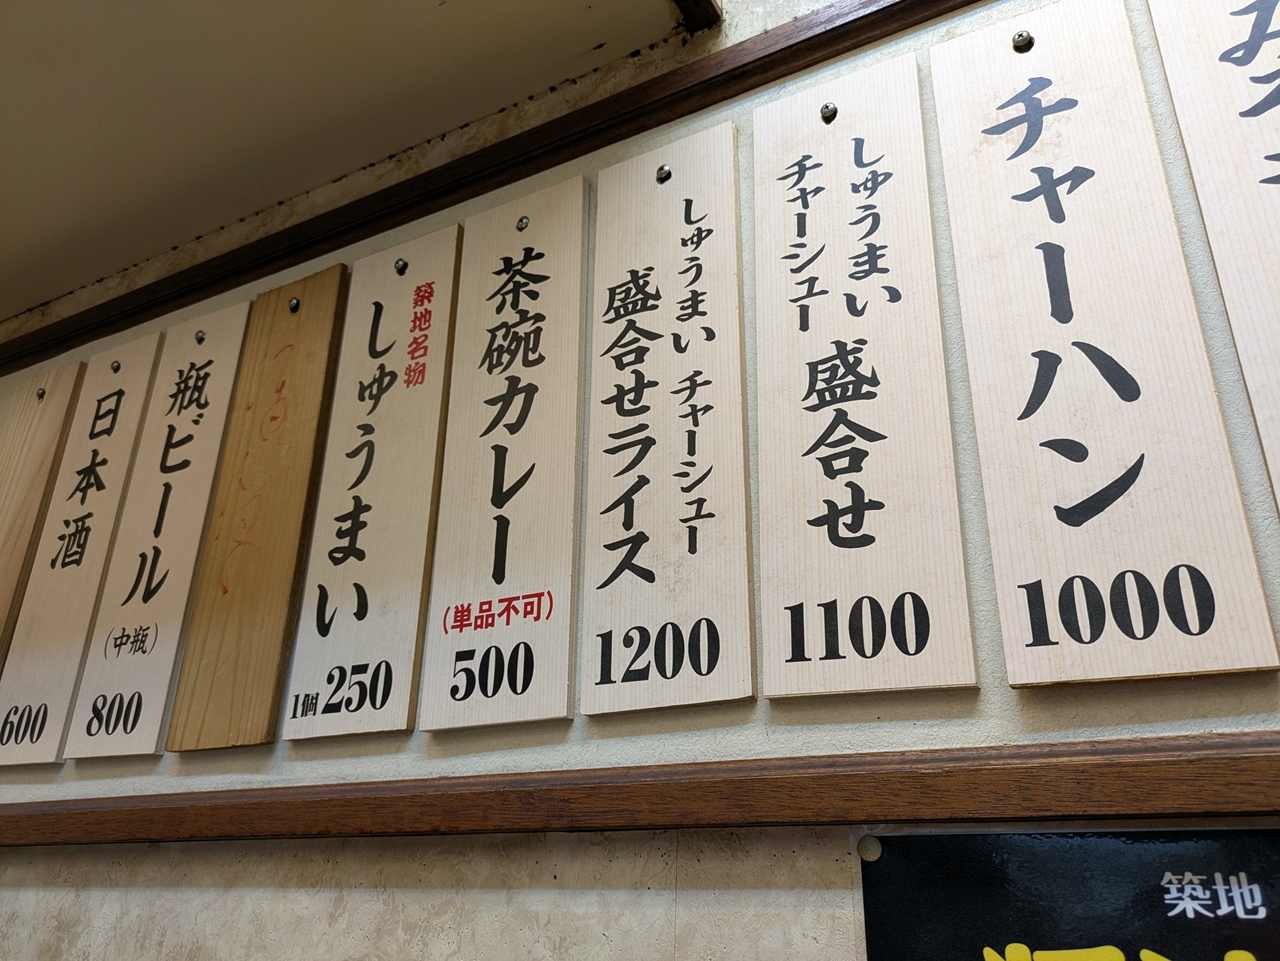 チャーハン
1000
しゅうまい
チャーシュー
盛合せ
1100
しゅうまい チャーシュー
盛合せライス
1200
茶碗カレー
(単品不可)
500
築地名物
しゅうまい
1個250
瓶ビール
(中瓶)
800
日本酒
600
築地